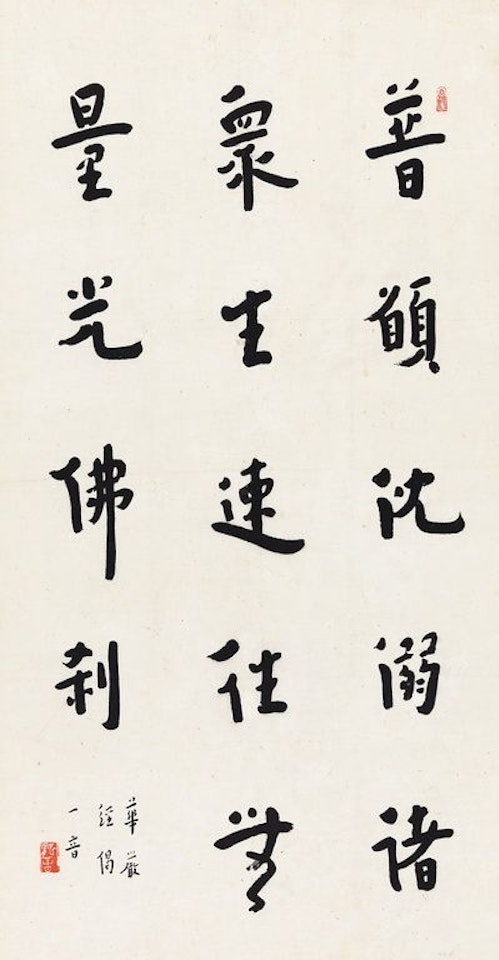 普願沈溺諸
衆生速往無
量光佛刹
華嚴
經偈
一音